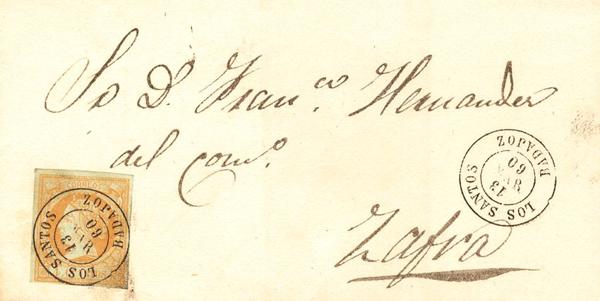 Sr D. Franco. Hernandez
del como.
Zafra
CORREOS
LOS SANTOS
13
MAR
60
BADAJOZ
LOS SANTOS
13
MAR
60
BADAJOZ